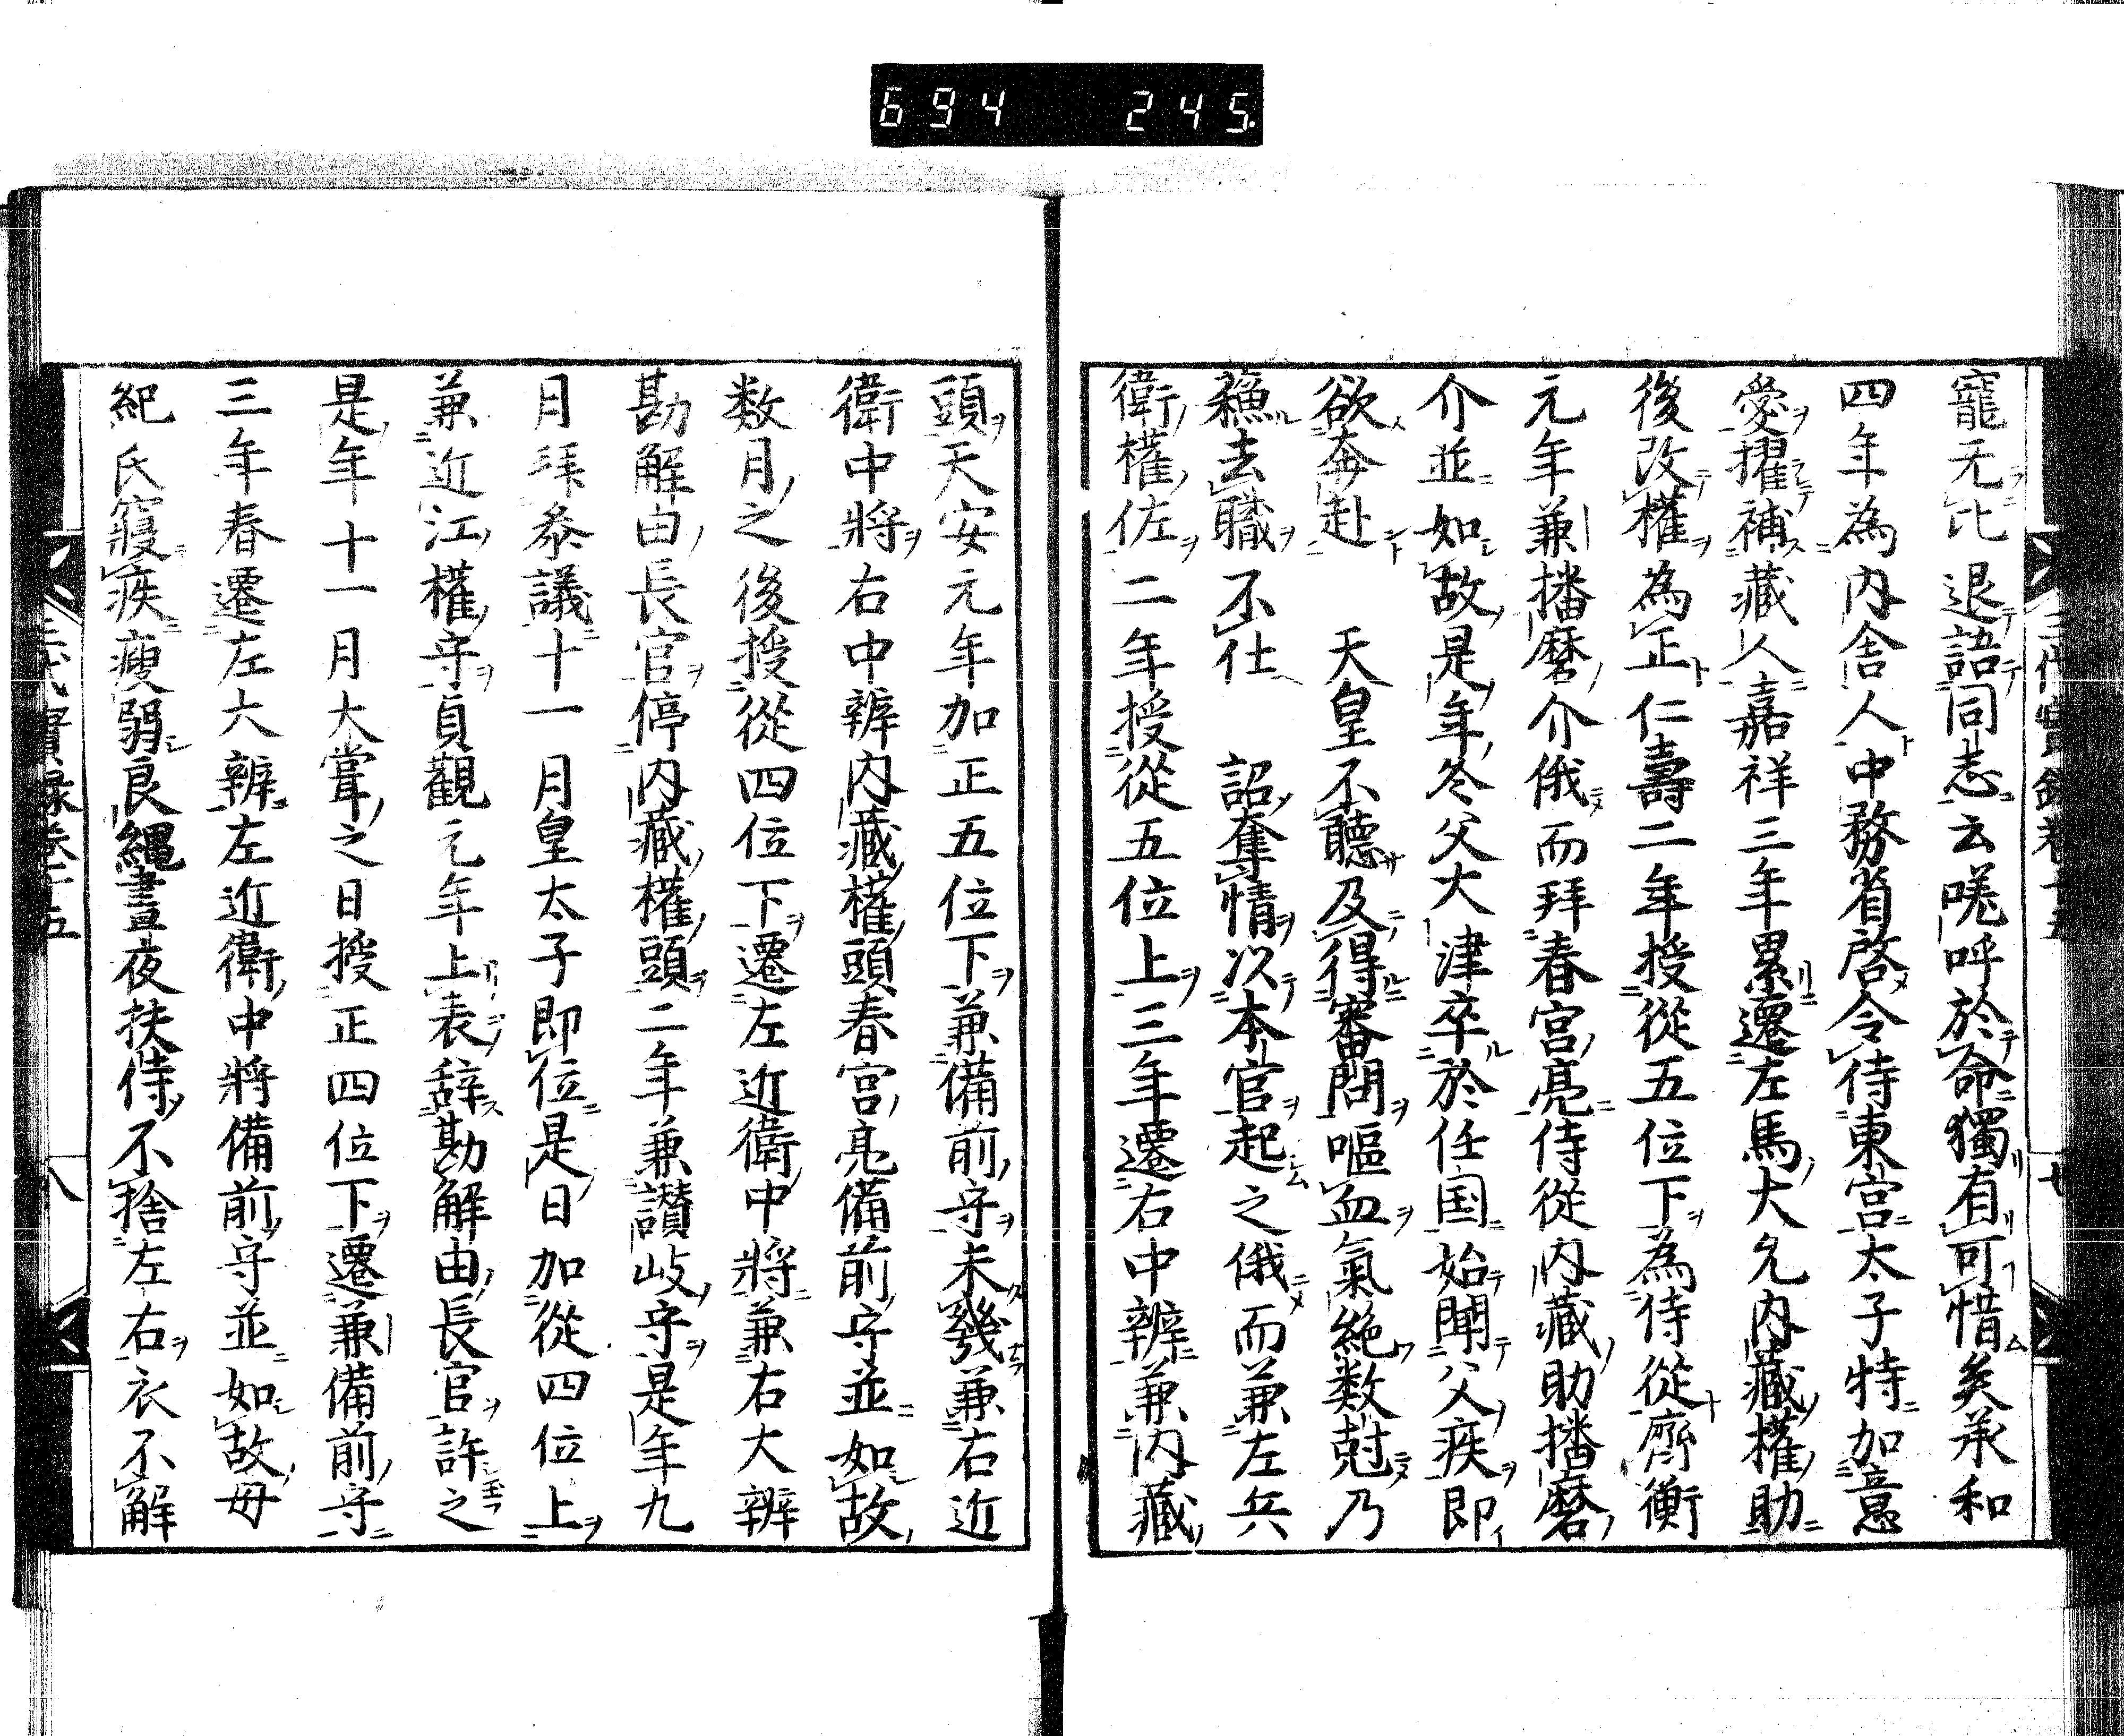 694 245
三代實録卷十五 七
寵无比退語同志云嗟呼於命獨有可惜矣承和
四年為内舎人中務省啓令侍東宮太子特加意
愛擢補藏人嘉祥三年累遷左馬大允内藏權助
後改權為正仁壽二年授從五位下為侍從齊衡
元年兼播磨介俄而拜春宮亮侍從内藏助播磨
介並如故是年冬父大津卒於任国始聞父疾即
欲奔赴 天皇不聽及得審問嘔血氣絶数尅乃
穌去職不仕 詔奪情以本官起之俄而兼左兵
衛權佐二年授從五位上三年遷右中辨兼内藏
頭天安元年加正五位下兼備前守未幾兼右近
衛中將右中辨内藏權頭春宮亮備前守並如故
数月之後授從四位下遷左近衛中將兼右大辨
勘解由長官停内藏權頭二年兼讃岐守是年九
月拜叅議十一月皇太子即位是日加從四位上
兼近江權守貞觀元年上表辞勘解由長官許之
是年十一月大甞之日授正四位下遷兼備前守
三年春遷左大辨左近衛中將備前守並如故母
紀氏寢疾瘦弱良繩晝夜扶侍不捨左右衣不解
三代實録卷十五 八